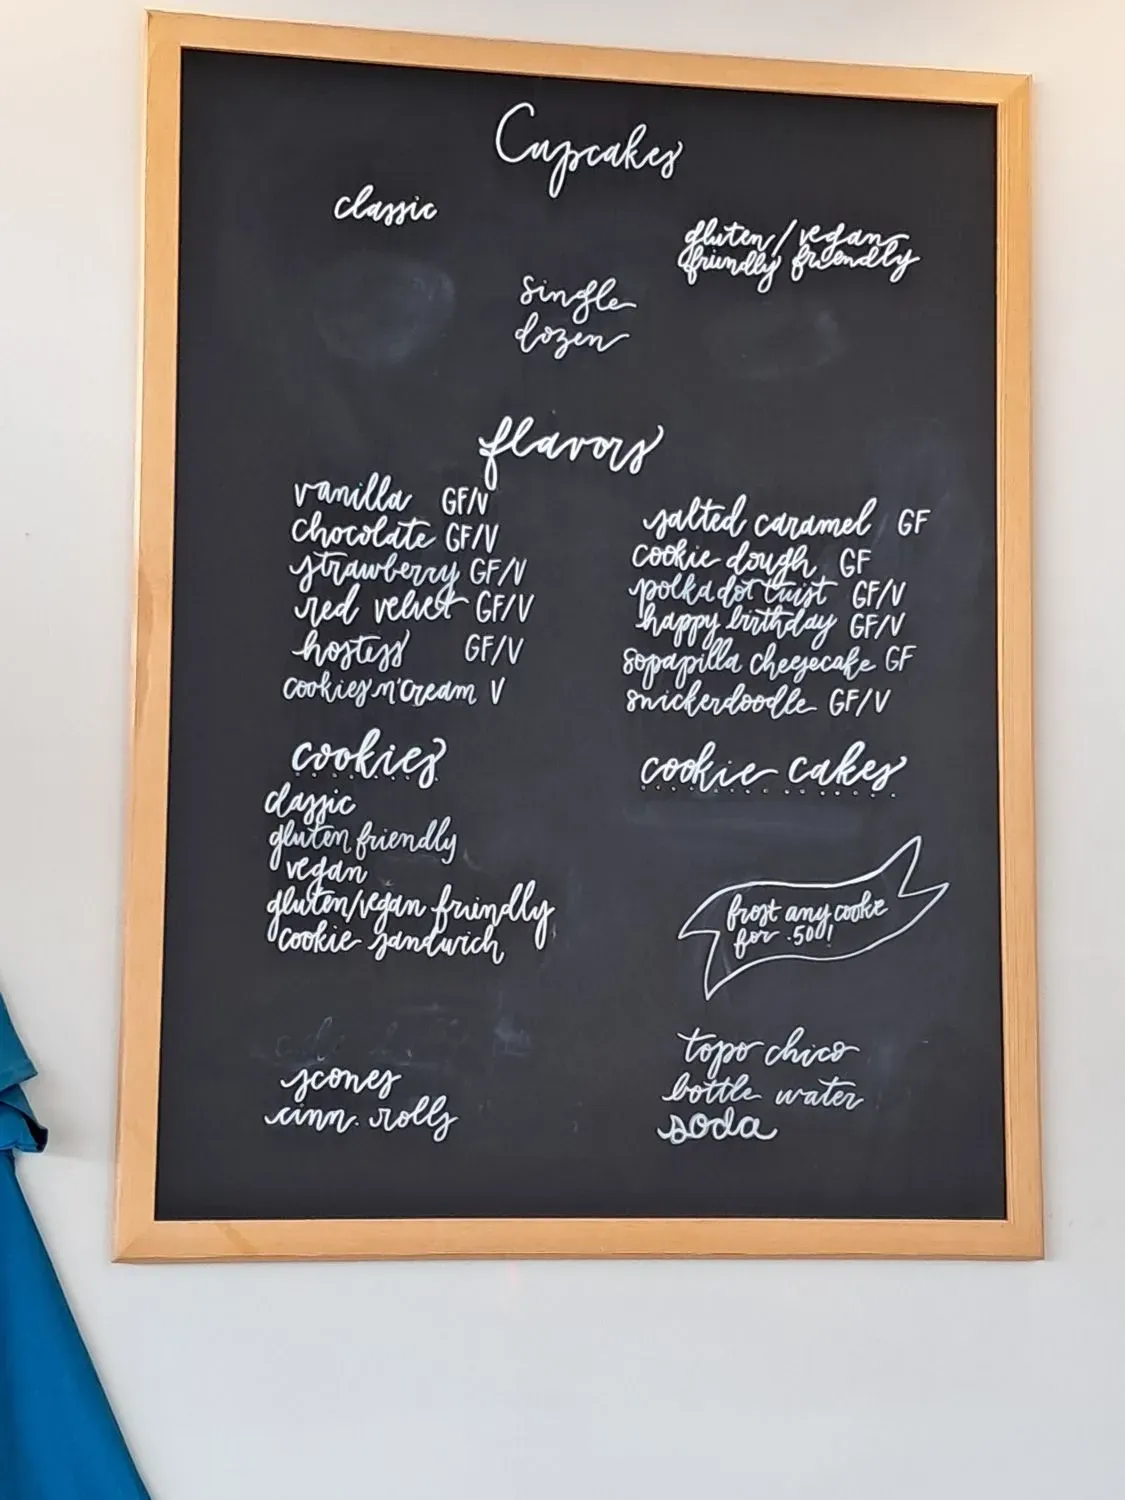 Cupcakes
classic
gluten/vegan
friendly friendly
single
dozen
flavors
vanilla GF/V
chocolate GF/V
strawberry GF/V
red velvet GF/V
hostess GF/V
cookies n' cream V
salted caramel GF
cookie dough GF
polka dot twist GF/V
happy birthday GF/V
sopapilla cheesecake GF
snickerdoodle GF/V
cookies
classic
gluten friendly
vegan
gluten/vegan friendly
cookie sandwich
cookie cakes
frost any cookie
for .50!
scones
cinn. rolls
topo chico
bottle water
soda